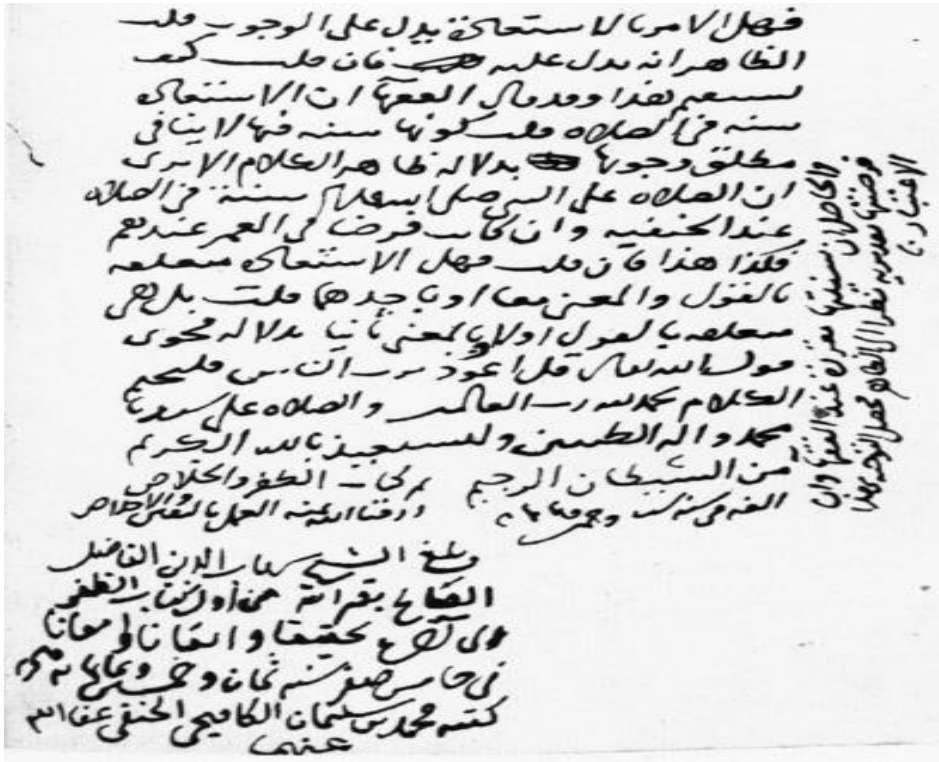 فهل الامر بالاستعاذة يدل على الوجوب قلت
الظاهر انه يدل عليه فان قلت كيف
يستقيم هذا وقد قال الفقهاء ان الاستعاذة
سنة فى الصلاة قلت كونها سنة فيها لا ينافى
مطلق وجوبها بدلالة ظاهر الكلام الا يرى
ان الصلاة على النبى صلى الله عليه سنة فى الصلاة
عند الحنفية وان كانت فرضا فى العمر عندهم
فكذا هذا فان قلت فهل الاستعاذة متعلقة
بالقول والمعنى معا او باحدهما قلت بل هى
متعلقة بالقول اولا وبالمعنى ثانيا بدلالة فحوى
قوله تعالى قل اعوذ برب الناس فليختم
الكلام بحمد لله رب العالمين والصلاة على سيدنا
محمد واله الطيبين ونستعيذ بالله الكريم
من الشيطان الرجيم
الفه فى سنة ست وخمسين
تم كتاب الظفر والخلاص
رزقنا الله منه العمل والاخلاص
وبلغ الشيخ الدين الفاضل
بقراءة من أول كتاب الظفر
الى تحقيقا واتقانا وامعانا
فى خامس صفر سنة ثمان وخمسين وثمانمائة
كتبه محمد بن سليمان الكافيجى الحنفى عفا الله
عنهما
والحاصل ان سنيتها عند الفقهاء وان
فرضيتها نظرا الى الظاهر
الاعتبار